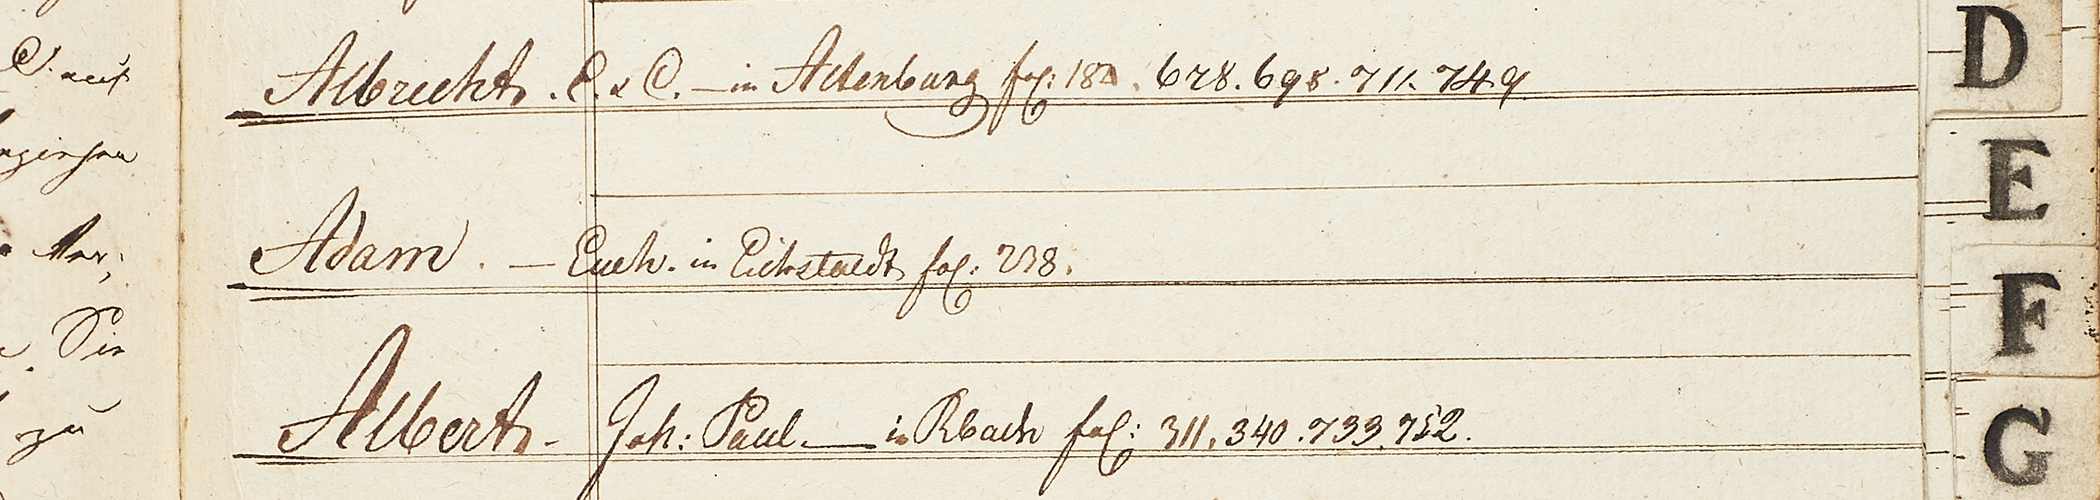 S. auf
Albrecht. C. & C. — in Altenburg fol: 182. 678. 698. 711. 749.
D
E
Adam. — Euch. in Eichstaedt fol: 238.
F
Albert - Joh: Paul. — in Rbach fol: 311. 340. 733. 752.
zu
G